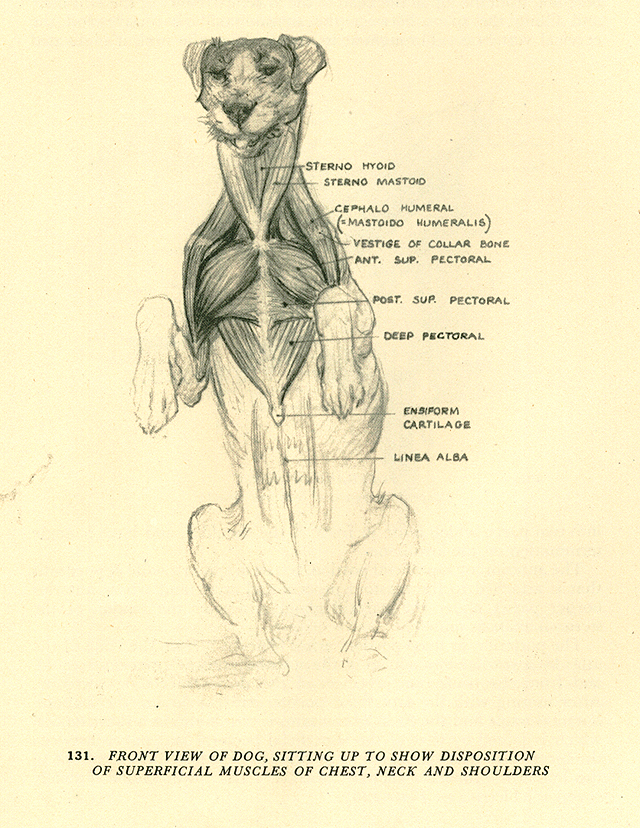 STERNO HYOID
STERNO MASTOID
CEPHALO HUMERAL
(=MASTOIDO HUMERALIS)
VESTIGE OF COLLAR BONE
ANT. SUP. PECTORAL
POST. SUP. PECTORAL
DEEP PECTORAL
ENSIFORM
CARTILAGE
LINEA ALBA
131. FRONT VIEW OF DOG, SITTING UP TO SHOW DISPOSITION
OF SUPERFICIAL MUSCLES OF CHEST, NECK AND SHOULDERS